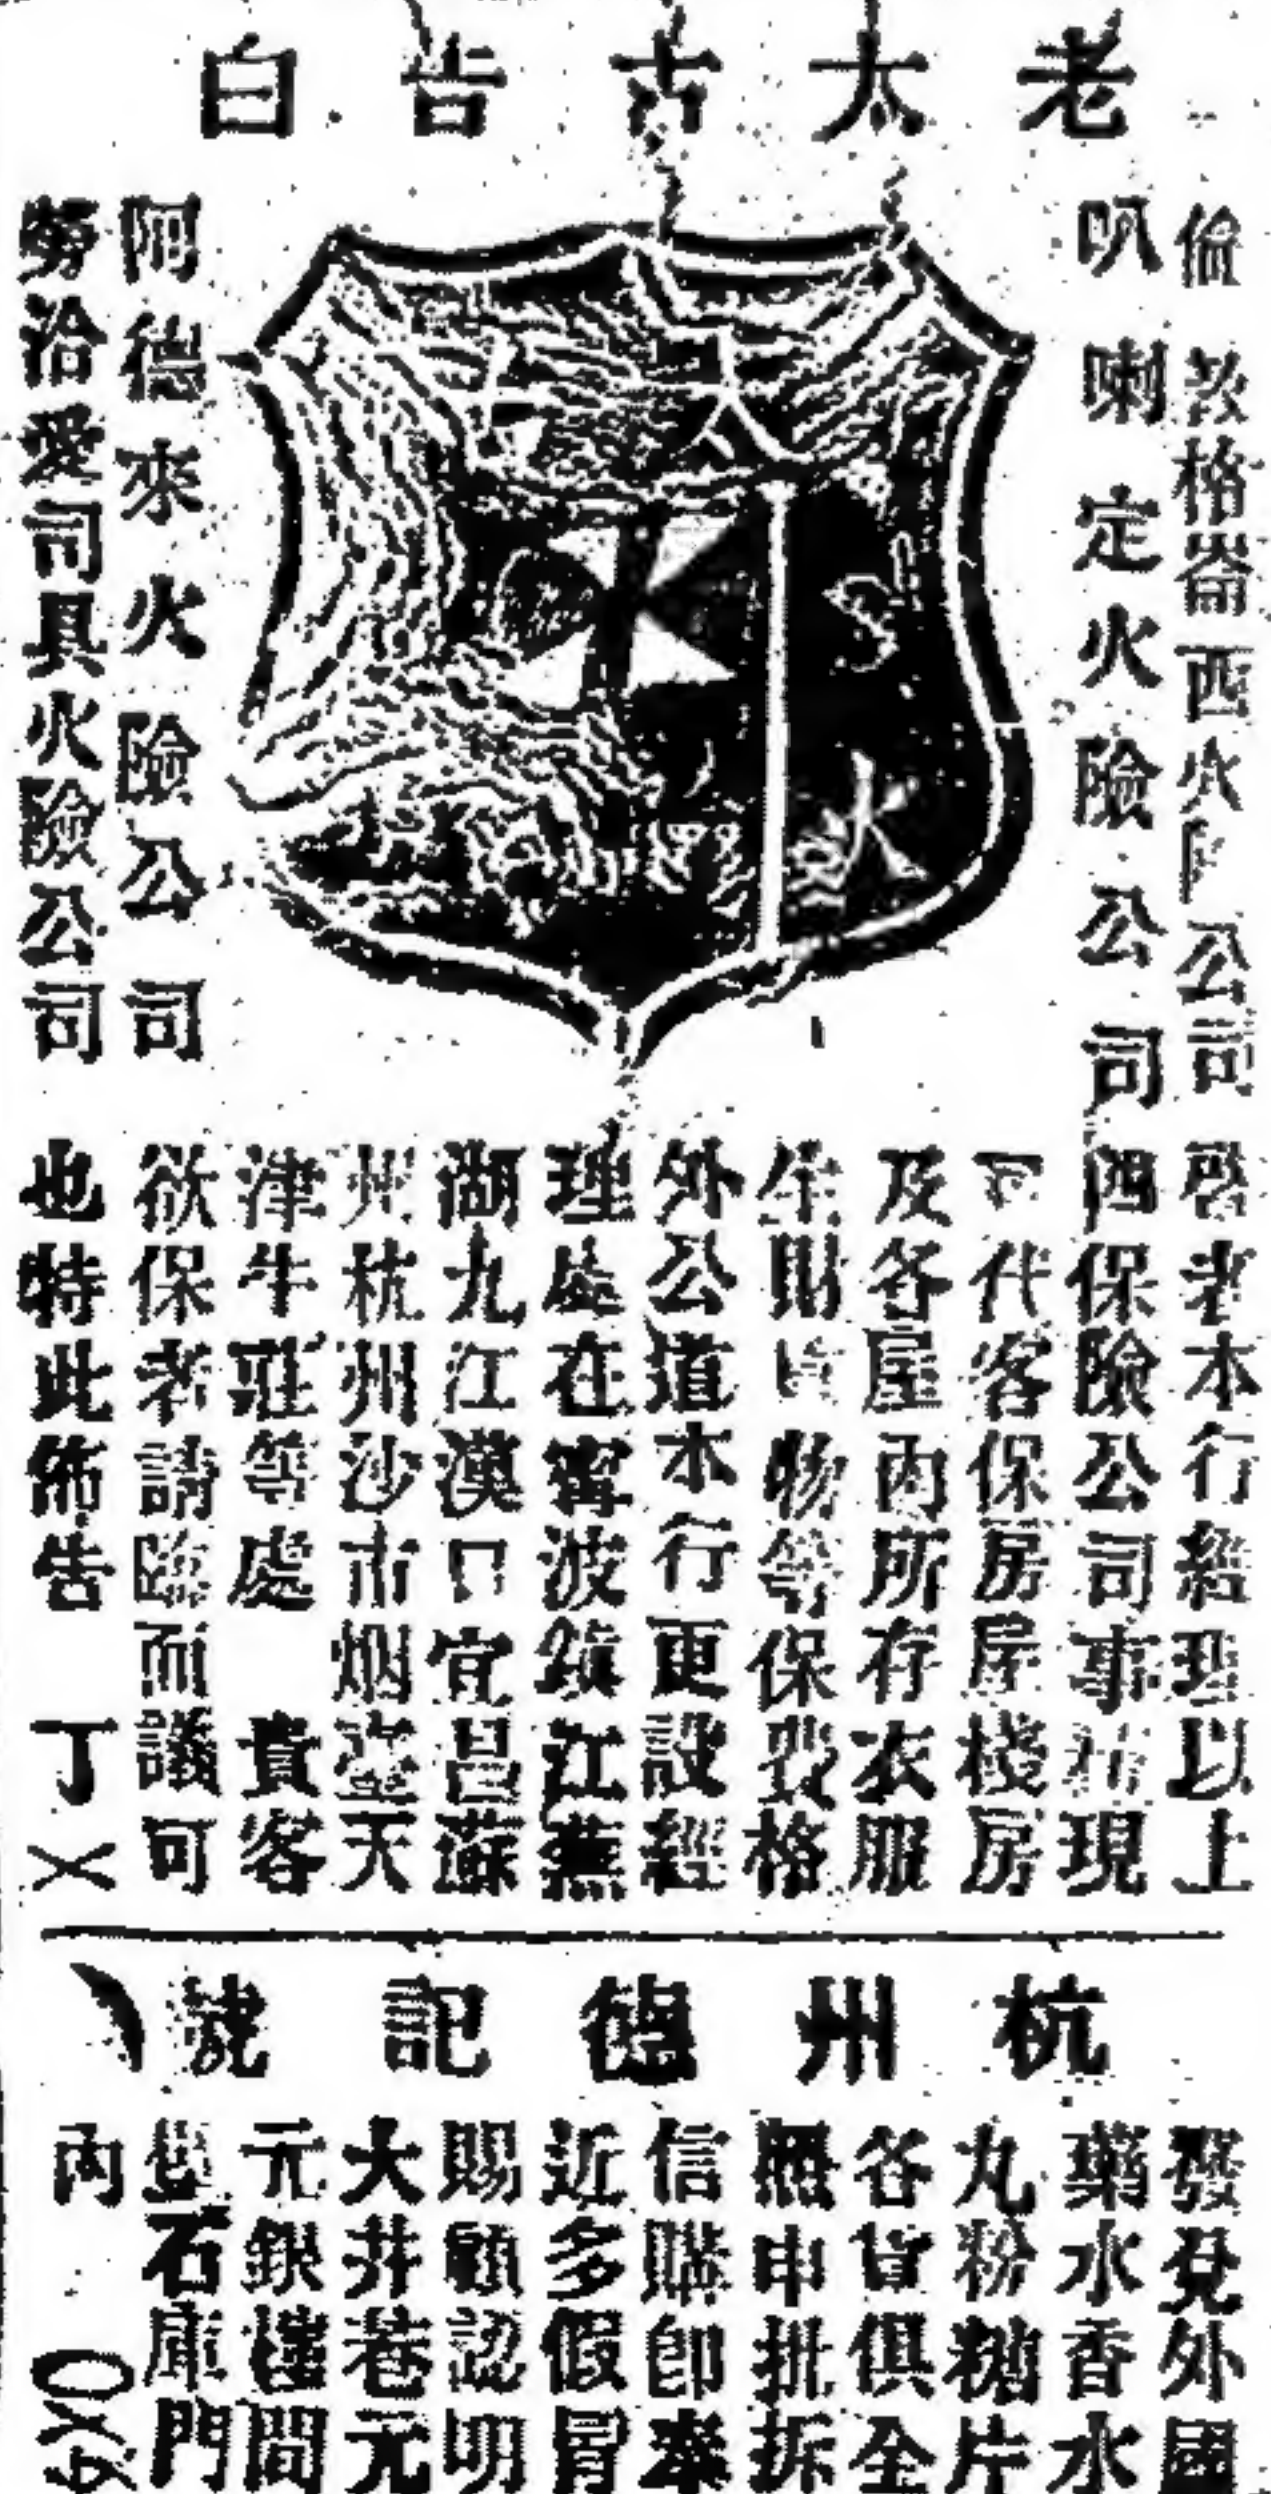 老太古告白
倫敦格崙西火險公司
叭喇定火險公司
太古
火
阿德來火險公司
勞洽愛司具火險公司
啓者本行經理以上
四保險公司事務現
下代客保房屋棧房
及各屋內所存衣服
傢生財貨物等保費格
外公道本行更設經
理處在寗波鎮江蕪
湖九江漢口宜昌蘇
州杭州沙市烟臺天
津牛莊等處 貴客
欲保者請臨而議可
也特此佈告 丁〤
杭州德記號
發兌外國
藥水香水
丸粉糖片
各貨俱全
照申批拆
信購即奉
近多假冒
賜顧認明
大井巷元
元銀樓間
壁石庫門
內